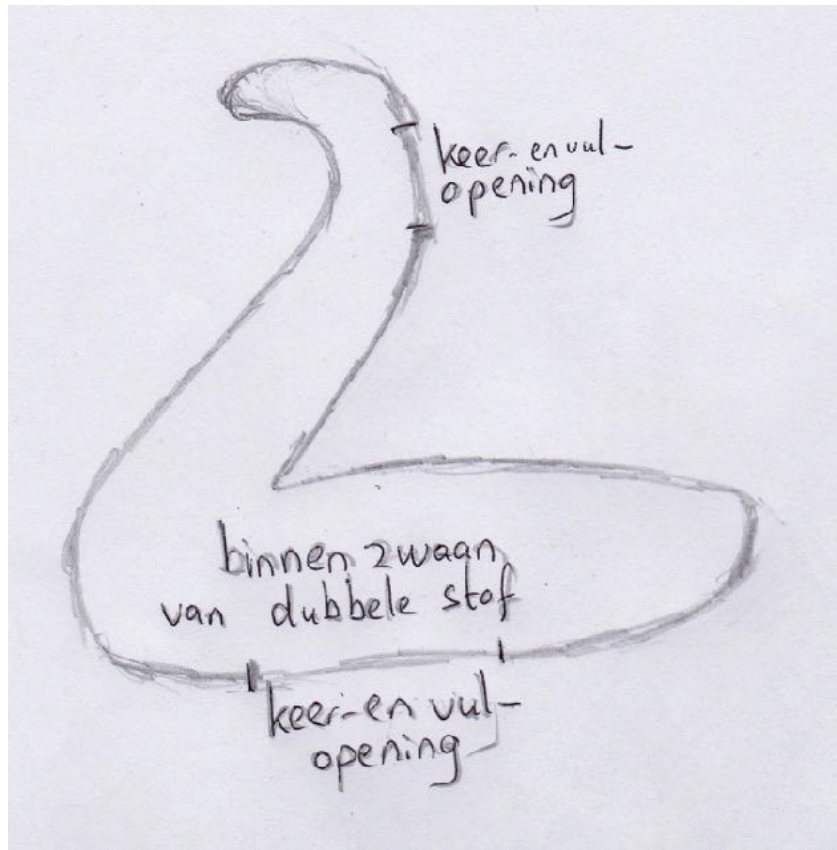 keer- en vul-
opening
binnen zwaan
van dubbele stof
keer-en vul-
opening